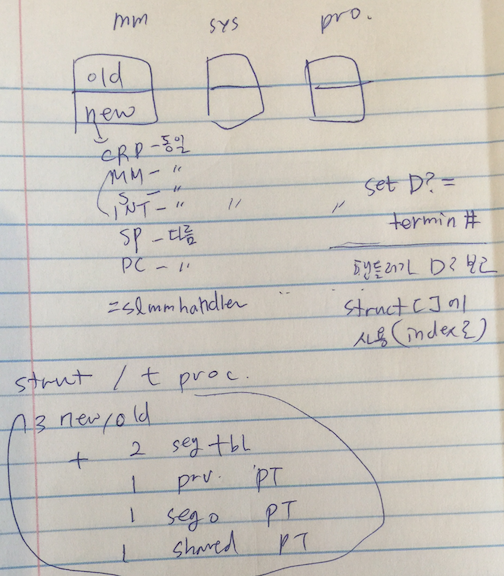 mm sys pro.
old
new
CRP - 동일
MM - "
S - "
INT - " " "
SP - 다름
PC - "
= slmmhandler
set D? =
termin #
핸들러가 D? 보고
struct [] 에
사용 (index로)
struct / t proc.
3 new/old
+ 2 seg tbl
1 prv. PT
1 sego PT
1 shared PT